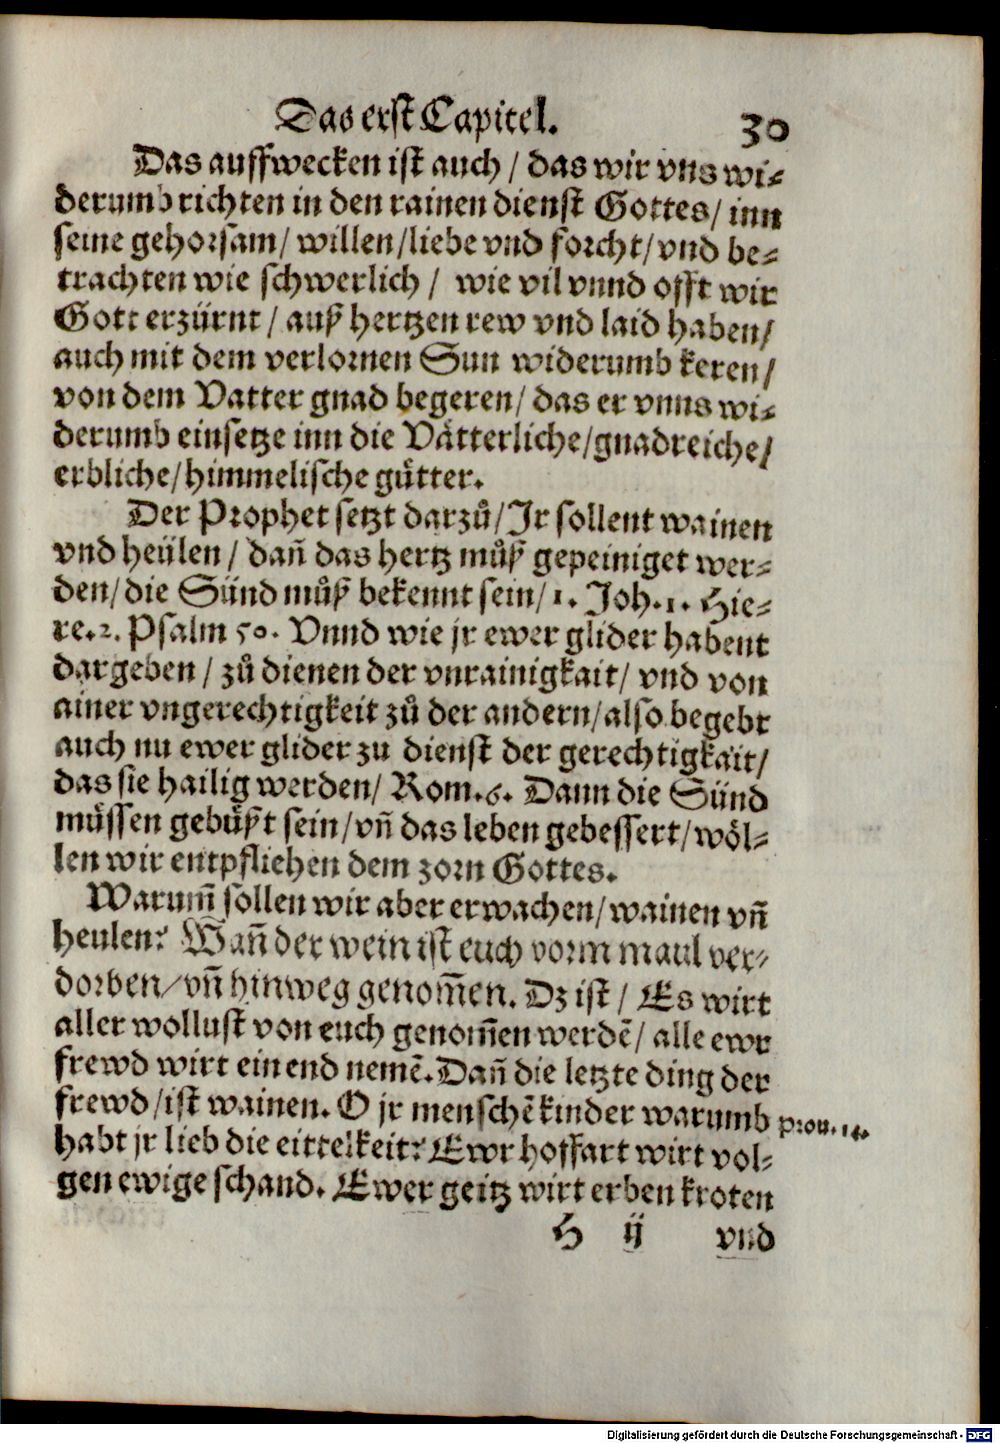 Das erst Capitel. 30
Das auffwecken ist auch / das wir vns wi-
derumb richten in den rainen dienst Gottes / inn
seine gehorsam / willen / liebe vnd forcht / vnd be-
trachten wie schwerlich / wie vil vnnd offt wir
Gott erzürnt / auß hertzen rew vnd laid haben /
auch mit dem verlornen Sun widerumb keren /
von dem Vatter gnad begeren / das er vnns wi-
derumb einsetze inn die Vätterliche / gnadreiche /
erbliche / himmelische gütter.
Der Prophet setzt darzů / Ir sollent wainen
vnd heülen / dañ das hertz můß gepeiniget wer-
den / die Sünd můß bekennt sein / 1. Joh. 1. Hie-
re. 2. Psalm 50. Vnnd wie jr ewer glider habent
dargeben / zů dienen der vnrainigkait / vnd von
ainer vngerechtigkeit zů der andern / also begebt
auch nu ewer glider zu dienst der gerechtigkait /
das sie hailig werden / Rom. 6. Dann die Sünd
müssen gebüßt sein / vñ das leben gebessert / wöl-
len wir entpfliehen dem zorn Gottes.
Warum̃ sollen wir aber erwachen / wainen vñ
heulen? Wañ der wein ist euch vorm maul ver-
dorben / vñ hinweg genom̃en. Dz ist / Es wirt
aller wollust von euch genom̃en werdẽ / alle ewr
frewd wirt ein end nemẽ. Dañ die letzte ding der
frewd / ist wainen. O jr menschẽkinder warumb
prou. 14.
habt jr lieb die eittelkeit? Ewr hoffart wirt vol-
gen ewige schand. Ewer geitz wirt erben kroten
H ij vnd
Digitalisierung gefördert durch die Deutsche Forschungsgemeinschaft - DFG